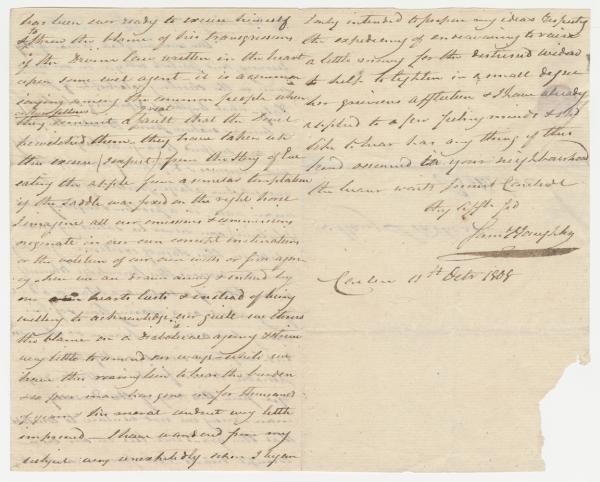 has been ever ready to excuse himself
& throw the blame of his transgressions
of the Divine law written in the heart
upon some evil agent - it is a common
saying among the common people when
they commit a great fault that the Devil
bewitched them they have taken up
this excuse I suspect from the Story of Eve
eating the apple from a similar temptation
if the Saddle was fixed on the right horse
I imagine all our omissions & commissions
originate in our own corrupt inclinations
or the volition of our own wills or free agen
cy when we are drawn away & enticed by
our hearts lusts & instead of being
willing to acknowledge our guilt we throw
the blame on a diabolical agency & strive
very little to amend our ways - while we
have this roaring lion to bear the burden
& so poor man has gone on for thousands
of years & his moral conduct very little
improved - I have wandered from my
subject very unexpectedly when I began
I only intended to propose my ideas respecting
the expediency of endeavouring to raise
a little money for the distressed widow
to help to lighten in a small degree
her grievous affliction & I have already
applied to a few feeling minds & shd
like to hear has any thing of this
kind occurred in your neighbourhood
the bearer waits so must Conclude
thy afft. fd
Saml
11th Octr 1808